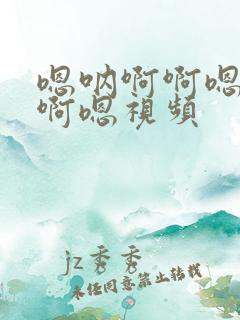 嗯呐啊啊嗯
啊嗯视频
jz秀秀
未经同意禁止转载